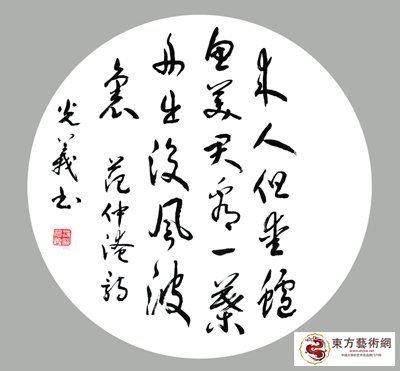 来人但爱鲈
鱼美君看一葉
舟出没风波
裏 范仲淹诗
光義书
東方藝術網